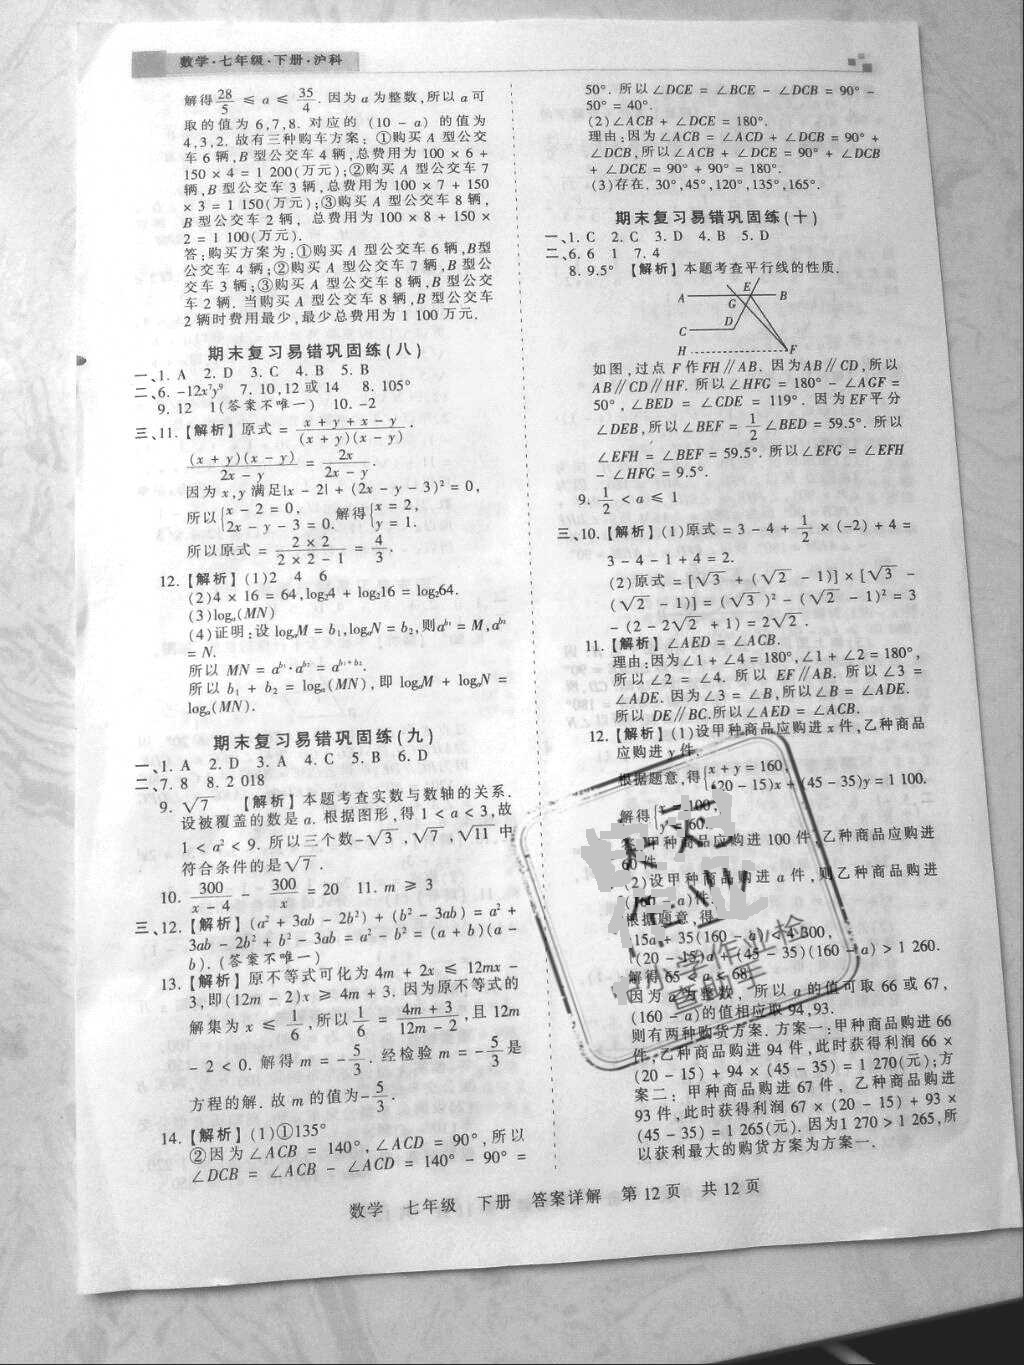 数学·七年级·下册·沪科
解得28/5 ≤ a ≤ 35/4. 因为a为整数,所以a可
取的值为6,7,8. 对应的 (10 - a) 的值为
4,3,2. 故有三种购车方案: ①购买 A 型公交
车6辆,B型公交车4辆,总费用为100 × 6 +
150 × 4 = 1 200(万元);②购买 A 型公交车7
辆,B型公交车3辆,总费用为100 × 7 + 150
× 3 = 1 150(万元);③购买 A 型公交车8辆,
B型公交车2辆, 总费用为100 × 8 + 150 ×
2 = 1 100(万元).
答:购买方案为:①购买 A 型公交车6辆,B型
公交车4辆;②购买 A 型公交车7辆,B型公
交车3辆;③购买 A 型公交车8辆,B型公交
车2辆. 当购买 A 型公交车8辆,B型公交车
2辆时费用最少,最少总费用为1 100万元.
期末复习易错巩固练(八)
一、1. A 2. D 3. C 4. B 5. B
二、6. -12x⁷y⁹ 7. 10,12或14 8. 105°
9. 12 1(答案不唯一) 10. -2
三、11.【解析】原式 = (x + y + x - y)/((x + y)(x - y)) ·
(x + y)(x - y)/(2x - y) = 2x/(2x - y).
因为x,y满足|x - 2| + (2x - y - 3)² = 0,
所以{x - 2 = 0, 2x - y - 3 = 0. 解得{x = 2, y = 1.
所以原式 = (2 × 2)/(2 × 2 - 1) = 4/3.
12.【解析】(1)2 4 6
(2)4 × 16 = 64,log₂4 + log₂16 = log₂64.
(3)logₐ(MN)
(4)证明:设 logₐM = b₁,logₐN = b₂,则a^b₁ = M,a^b₂
= N.
所以 MN = a^b₁·a^b₂ = a^(b₁+b₂).
所以 b₁ + b₂ = logₐ(MN),即 logₐM + logₐN =
logₐ(MN).
期末复习易错巩固练(九)
一、1. A 2. D 3. A 4. C 5. B 6. D
二、7. 8 8. 2 018
9. √7 【解析】本题考查实数与数轴的关系.
设被覆盖的数是a. 根据图形,得1 < a < 3,故
1 < a² < 9. 所以三个数 -√3,√7,√11中
符合条件的是√7.
10. 300/(x - 4) - 300/x = 20 11. m ≥ 3
三、12.【解析】(a² + 3ab - 2b²) + (b² - 3ab) = a² +
3ab - 2b² + b² - 3ab = a² - b² = (a + b)(a -
b). (答案不唯一)
13.【解析】原不等式可化为4m + 2x ≤ 12mx -
3,即(12m - 2)x ≥ 4m + 3. 因为原不等式的
解集为 x ≤ 1/6,所以1/6 = (4m + 3)/(12m - 2),且12m
- 2 < 0. 解得 m = -5/3. 经检验 m = -5/3是
方程的解. 故m的值为-5/3.
14.【解析】(1)①135°
②因为∠ACB = 140°,∠ACD = 90°,所以
∠DCB = ∠ACB - ∠ACD = 140° - 90° =
50°. 所以∠DCE = ∠BCE - ∠DCB = 90° -
50° = 40°.
(2)∠ACB + ∠DCE = 180°.
理由:因为∠ACB = ∠ACD + ∠DCB = 90° +
∠DCB,所以∠ACB + ∠DCE = 90° + ∠DCB
+ ∠DCE = 90° + 90° = 180°.
(3)存在. 30°,45°,120°,135°,165°.
期末复习易错巩固练(十)
一、1. C 2. C 3. D 4. B 5. D
二、6. 6 1 7. 4
8. 9.5° 【解析】本题考查平行线的性质.
A E B
G
C D
H F
如图,过点F作FH∥AB. 因为AB∥CD,所以
AB∥CD∥HF. 所以∠HFG = 180° - ∠AGF =
50°,∠BED = ∠CDE = 119°. 因为EF平分
∠DEB,所以∠BEF = 1/2∠BED = 59.5°. 所以
∠EFH = ∠BEF = 59.5°. 所以∠EFG = ∠EFH
- ∠HFG = 9.5°.
9. 1/2 < a ≤ 1
三、10.【解析】(1)原式 = 3 - 4 + 1/2 × (-2) + 4 =
3 - 4 - 1 + 4 = 2.
(2)原式 = [√3 + (√2 - 1)] × [√3 -
(√2 - 1)] = (√3)² - (√2 - 1)² = 3
- (2 - 2√2 + 1) = 2√2.
11.【解析】∠AED = ∠ACB.
理由:因为∠1 + ∠4 = 180°,∠1 + ∠2 = 180°,
所以∠2 = ∠4. 所以 EF∥AB. 所以∠3 =
∠ADE. 因为∠3 = ∠B,所以∠B = ∠ADE.
所以 DE∥BC.所以∠AED = ∠ACB.
12.【解析】(1)设甲种商品应购进x件,乙种商品
应购进y件.
根据题意,得{x + y = 160, (20 - 15)x + (45 - 35)y = 1 100.
解得{x = 100, y = 60.
答:甲种商品应购进100件,乙种商品应购进
60件.
(2)设甲种商品购进a件,则乙种商品购进
(160 - a)件.
根据题意,得
{15a + 35(160 - a) < 4 300,
(20 - 15)a + (45 - 35)(160 - a) > 1 260.
解得65 < a < 68.
因为a为整数, 所以a的值可取66或67,
(160 - a)的值相应取94,93.
则有两种购货方案. 方案一:甲种商品购进66
件,乙种商品购进94件,此时获得利润66 ×
(20 - 15) + 94 × (45 - 35) = 1 270(元);方
案二: 甲种商品购进67件, 乙种商品购进
93件,此时获得利润67 × (20 - 15) + 93 ×
(45 - 35) = 1 265(元). 因为1 270 > 1 265,所
以获利最大的购货方案为方案一.
作业检
查助手
数学 七年级 下册 答案详解 第12页 共12页